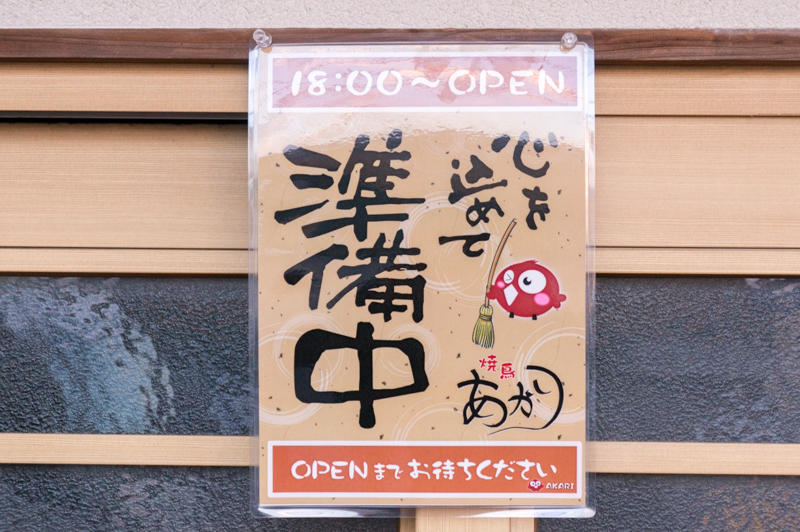 18:00〜OPEN
心を
込めて
準備中
焼鳥
あかり
OPENまでお待ちください
AKARI